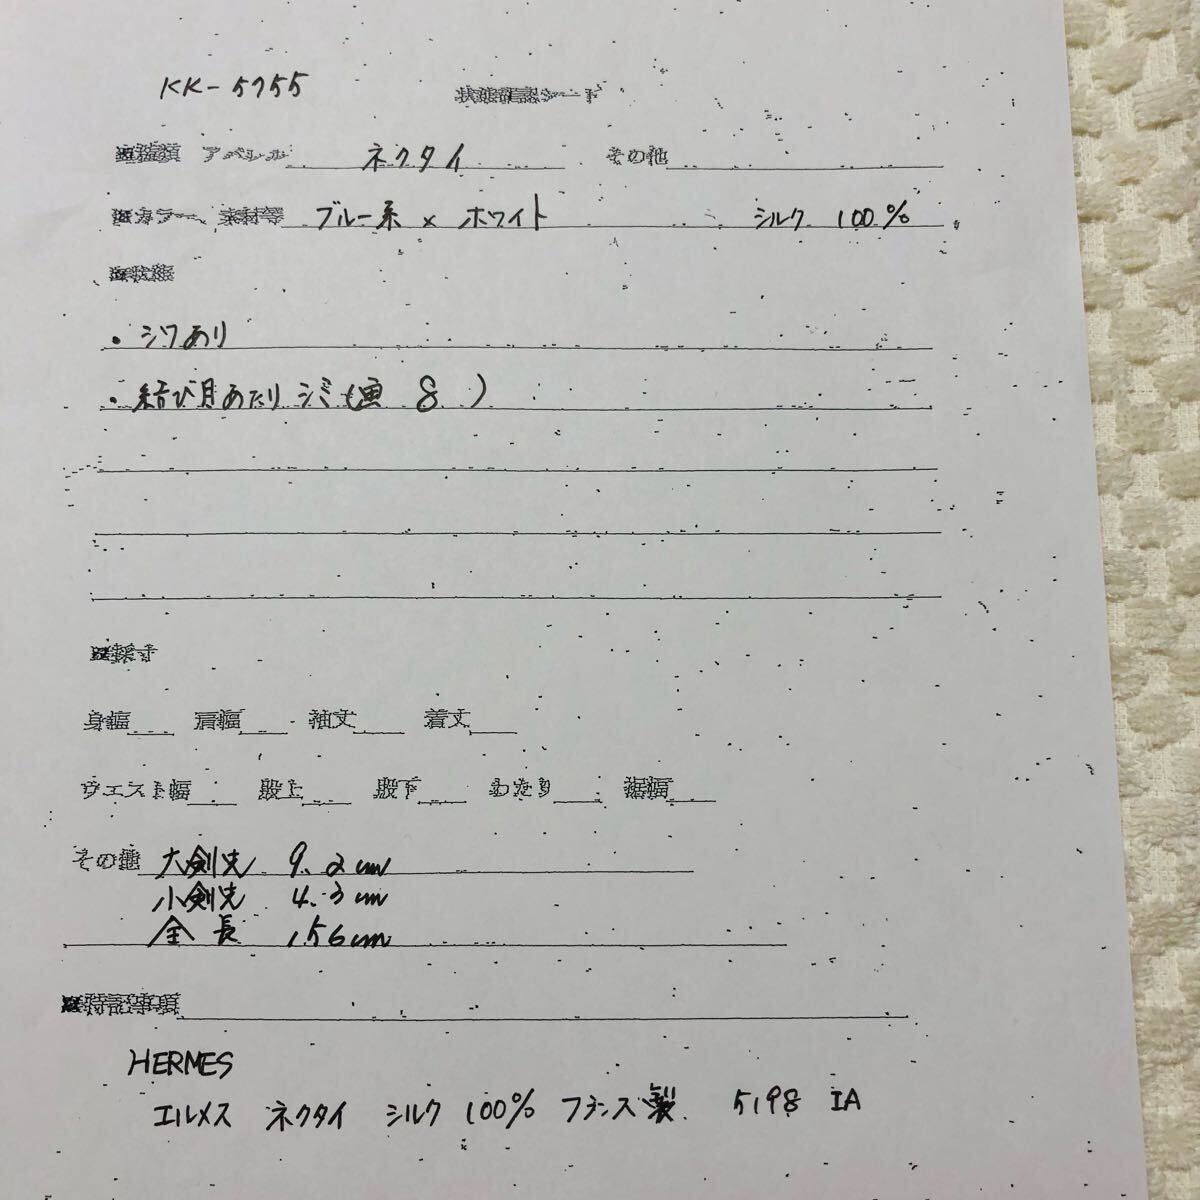 KK-5755
状態確認シート
※種類 アパレル ネクタイ その他
※カラー、素材等 ブルー系 × ホワイト シルク 100%
※状態
・シワあり
・結び目あたり シミ(画 8 )
※採寸
身幅 肩幅 袖丈 着丈
ウエスト幅 股上 股下 わたり 裾幅
その他 大剣先 9.2cm
小剣先 4.3cm
全長 156cm
※特記事項
HERMES
エルメス ネクタイ シルク 100% フランス製 5198 IA